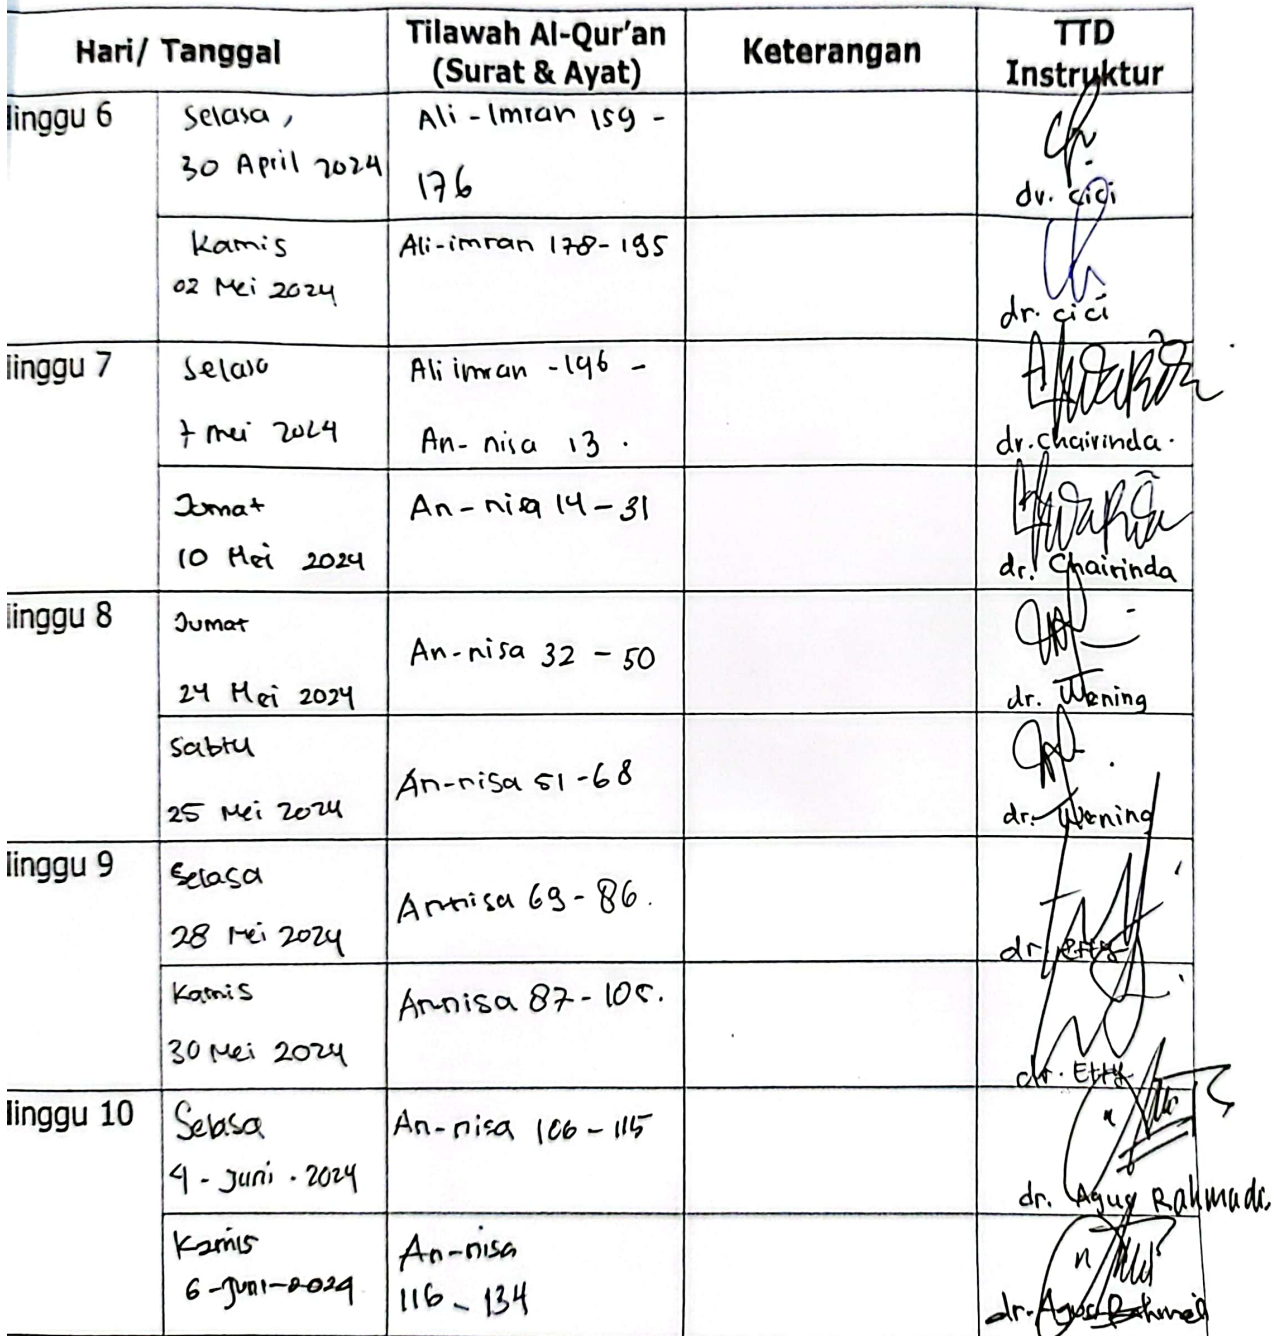 Hari/ Tanggal
Tilawah Al-Qur'an
(Surat & Ayat)
Keterangan
TTD
Instruktur
linggu 6
Selasa,
30 April 2024
Ali - Imran 159 -
176
dr. cici
Kamis
02 Mei 2024
Ali-imran 178-195
dr. cici
linggu 7
Selasa
7 mei 2024
Ali imran -196 -
An- nisa 13 .
dr. chairinda.
Jumat
10 Mei 2024
An-nisa 14-31
dr. Chairinda
linggu 8
Jumat
24 Mei 2024
An-nisa 32 - 50
dr. Wening
Sabtu
25 Mei 2024
An-nisa 51-68
dr. Wening
linggu 9
Selasa
28 Mei 2024
Annisa 69-86.
dr. Etty
Kamis
30 Mei 2024
Annisa 87-105.
dr. Etty
linggu 10
Selasa
4 - Juni . 2024
An-nisa 106-115
dr. Agus
Kamis
6-Juni-2024
An-nisa
116 - 134
dr. Agus